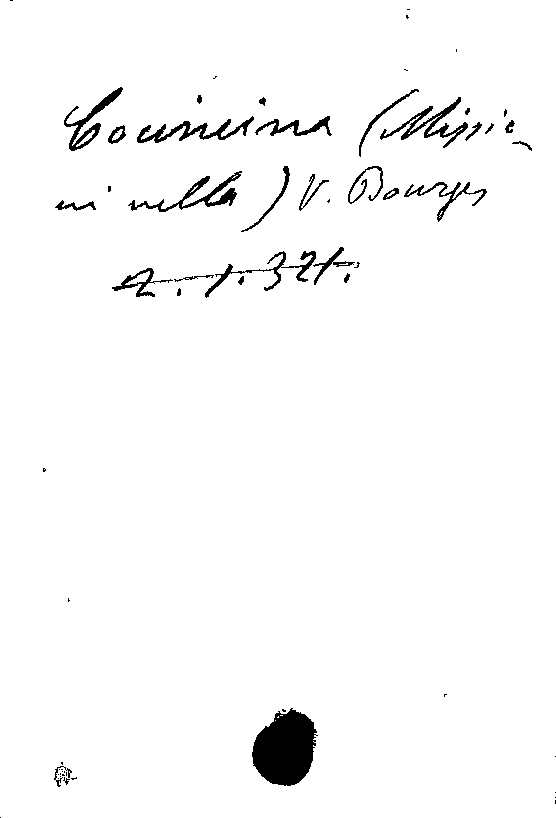 Cocincina (Missio-
ni nella) V. Bourges
2.1.321.